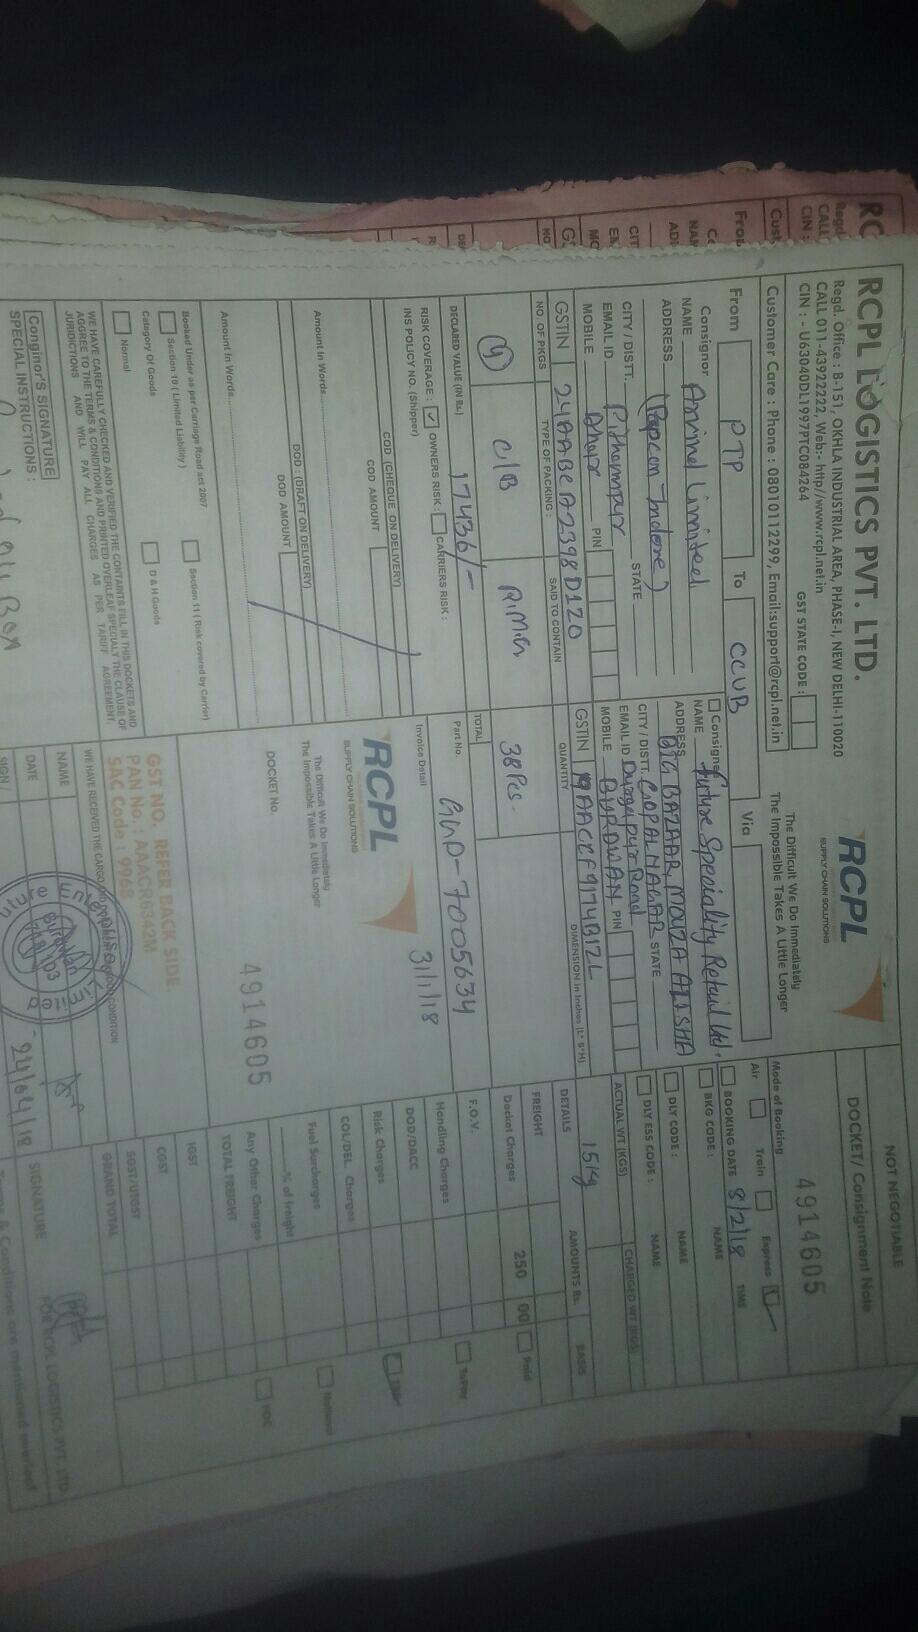 RCPL LOGISTICS PVT. LTD.
Regd. Office : B-151, OKHLA INDUSTRIAL AREA, PHASE-I, NEW DELHI-110020
CALL 011-43922222, Web:- http//www.rcpl.net.in
CIN : - U63040DL1997PTC084264
GST STATE CODE :
Customer Care : Phone : 08010112299, Email:support@rcpl.net.in
RCPL
SUPPLY CHAIN SOLUTIONS
The Difficult We Do Immediately
The Impossible Takes A Little Longer
NOT NEGOTIABLE
DOCKET/ Consignment Note
4914605
Mode of Booking
Air Train Express
From PTP To CCUB Via
BOOKING DATE 8/2/18 TIME
BKG CODE : NAME
DLY CODE : NAME
DLY ESS CODE : NAME
Consignor
NAME Arvind Limited
ADDRESS (Pepcon Indore)
CITY / DISTT. Pithampur STATE
EMAIL ID Dhar
MOBILE PIN
GSTIN 24AABCA2398D1Z0
Consignee
NAME Future Speciality Retail Ltd.
ADDRESS BIG BAZAAR, MOUZA
CITY / DISTT. GOPAL NAGAR STATE
EMAIL ID Durgapur Road
MOBILE BURDWAN PIN
GSTIN 19AACCF9174B1ZL
ACTUAL WT (KGS) CHARGED WT (KGS)
15kg
NO OF PKGS TYPE OF PACKING : SAID TO CONTAIN QUANTITY DIMENSION in Inches (L* B*H)
C/B R.M.G 38 Pcs.
TOTAL
DECLARED VALUE (IN Rs.) 17436/-
RISK COVERAGE : OWNERS RISK : CARRIERS RISK :
INS POLICY NO. (Shipper)
COD (CHEQUE ON DELIVERY)
COD AMOUNT
Amount In Words
DOD : (DRAFT ON DELIVERY)
DOD AMOUNT
Amount In Words
Part No.
7005634
Invoice Detail 31/1/18
RCPL
SUPPLY CHAIN SOLUTIONS
The Difficult We Do Immediately
The Impossible Takes A Little Longer
DOCKET No.
4914605
DETAILS AMOUNTS Rs. BASIS
FREIGHT
Docket Charges 250 00
F.O.V.
Handling Charges
DOD/DACC
Risk Charges
COL/DEL. Charges
Fuel Surcharges
% of freight
Any Other Charges
TOTAL FREIGHT
IGST
CGST
SGST/UTGST
GRAND TOTAL
Paid
To Pay
FOC
Booked Under as per Carriage Road act 2007
Section 10 ( Limited Liability ) Section 11 ( Risk covered by Carrier)
Category Of Goods
Normal D & H Goods
WE HAVE CAREFULLY CHECKED AND VERIFIED THE CONTAINTS FILL IN THIS DOCKETS AND
AGGREE TO THE TERMS & CONDITIONS AND PRINTED OVERLEAF SPECIALY THE CLAUSE OF
JURIDICTIONS AND WILL PAY ALL CHARGES AS PER TARIFF AGREEMENT.
Conginor'S SIGNATURE
SPECIAL INSTRUCTIONS :
GST NO. REFER BACK SIDE.
PAN No. : AAACR6342M
SAC Code : 9968
WE HAVE RECEIVED THE CARGO CONDITION
NAME
DATE 24/04/18
SIGN
SIGNATURE
FOR RCPL LOGISTICS PVT. LTD.